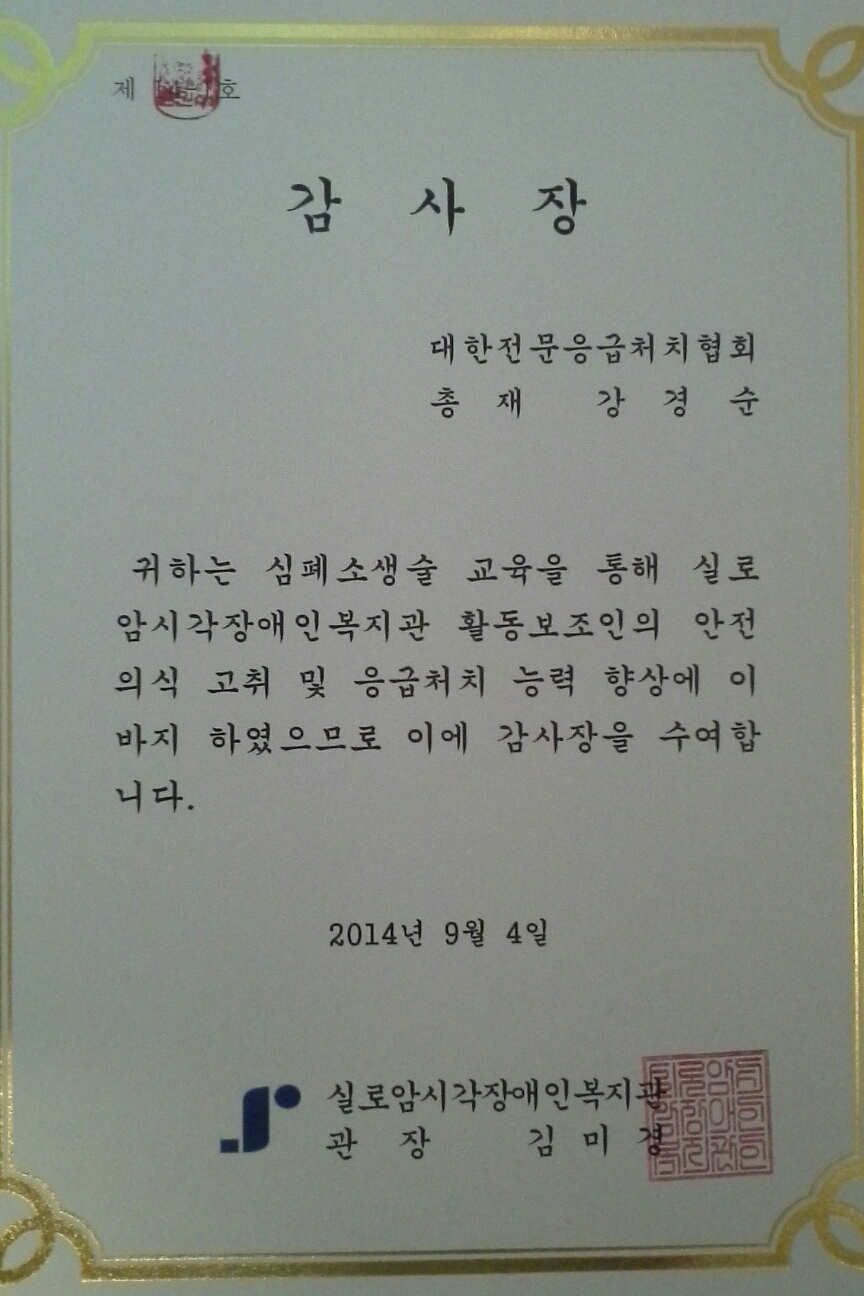 제 호
감 사 장
대한전문응급처치협회
총 재 강 경 순
귀하는 심폐소생술 교육을 통해 실로
암시각장애인복지관 활동보조인의 안전
의식 고취 및 응급처치 능력 향상에 이
바지 하였으므로 이에 감사장을 수여합
니다.
2014년 9월 4일
실로암시각장애인복지관
관 장 김 미 경